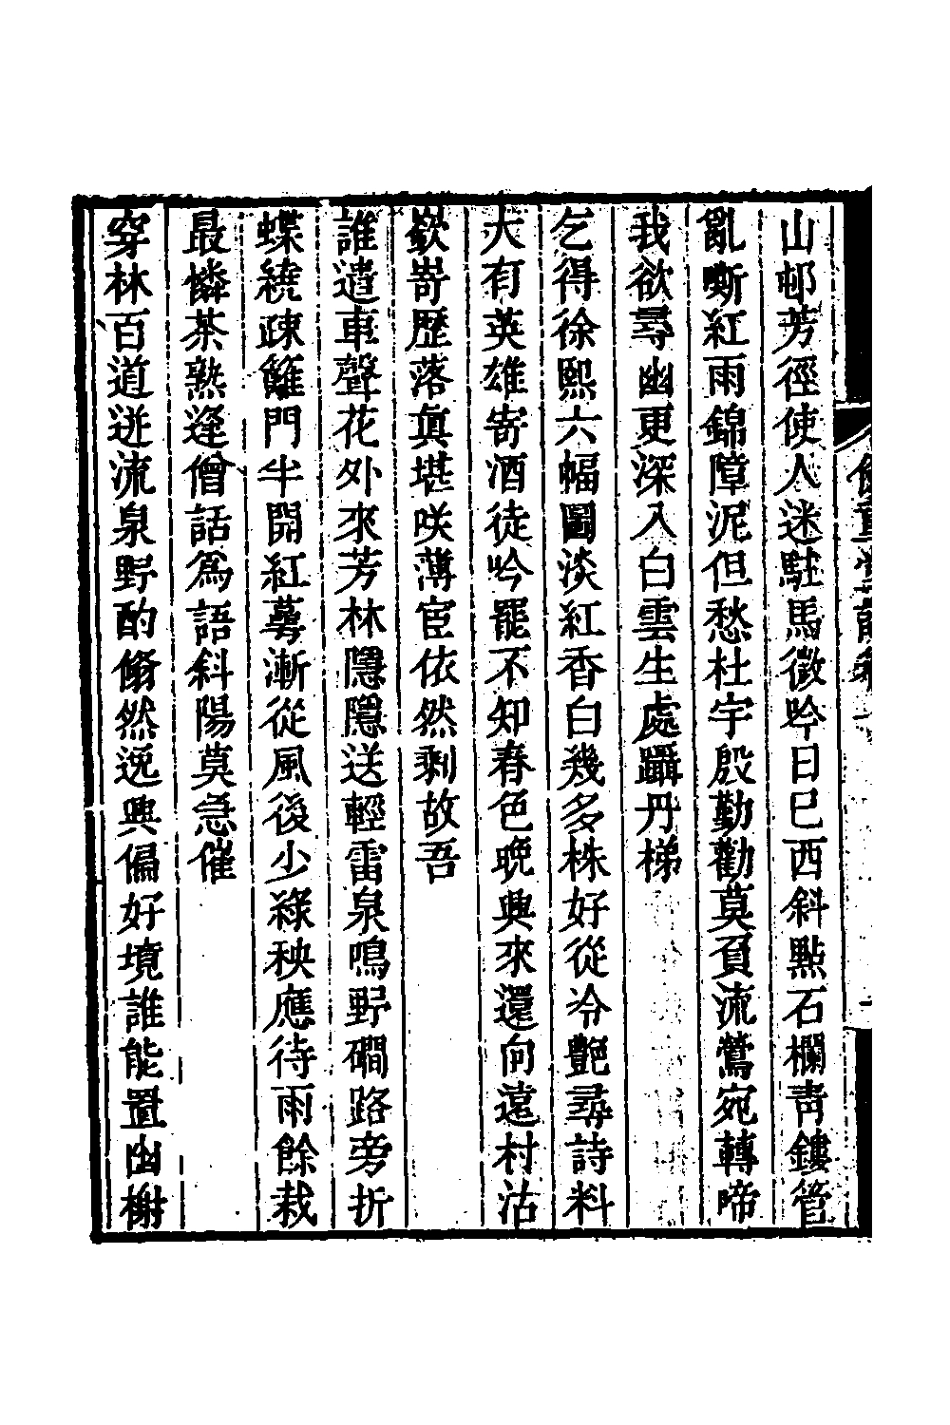 山邨芳徑使人迷駐馬微吟日巳西斜點石欄靑鏤管
亂嘶紅雨錦障泥但愁杜宇殷勤勸莫負流鶯宛轉啼
我欲尋幽更深入白雲生處躡丹梯
乞得徐熙六幅圖淡紅香白幾多株好從冷艷尋詩料
大有英雄寄酒徒吟罷不知春色晩興來還向遠村沽
嶔嵜歷落眞堪咲薄宦依然剩故吾
誰遣車聲花外來芳林隱隱送輕雷泉鳴野磵路旁折
蝶繞疎籬門半開紅蕚漸從風後少綠秧應待雨餘栽
最憐茶熟逢僧話爲語斜陽莫急催
穿林百道迸流泉野酌翛然逸興偏好境誰能置幽榭